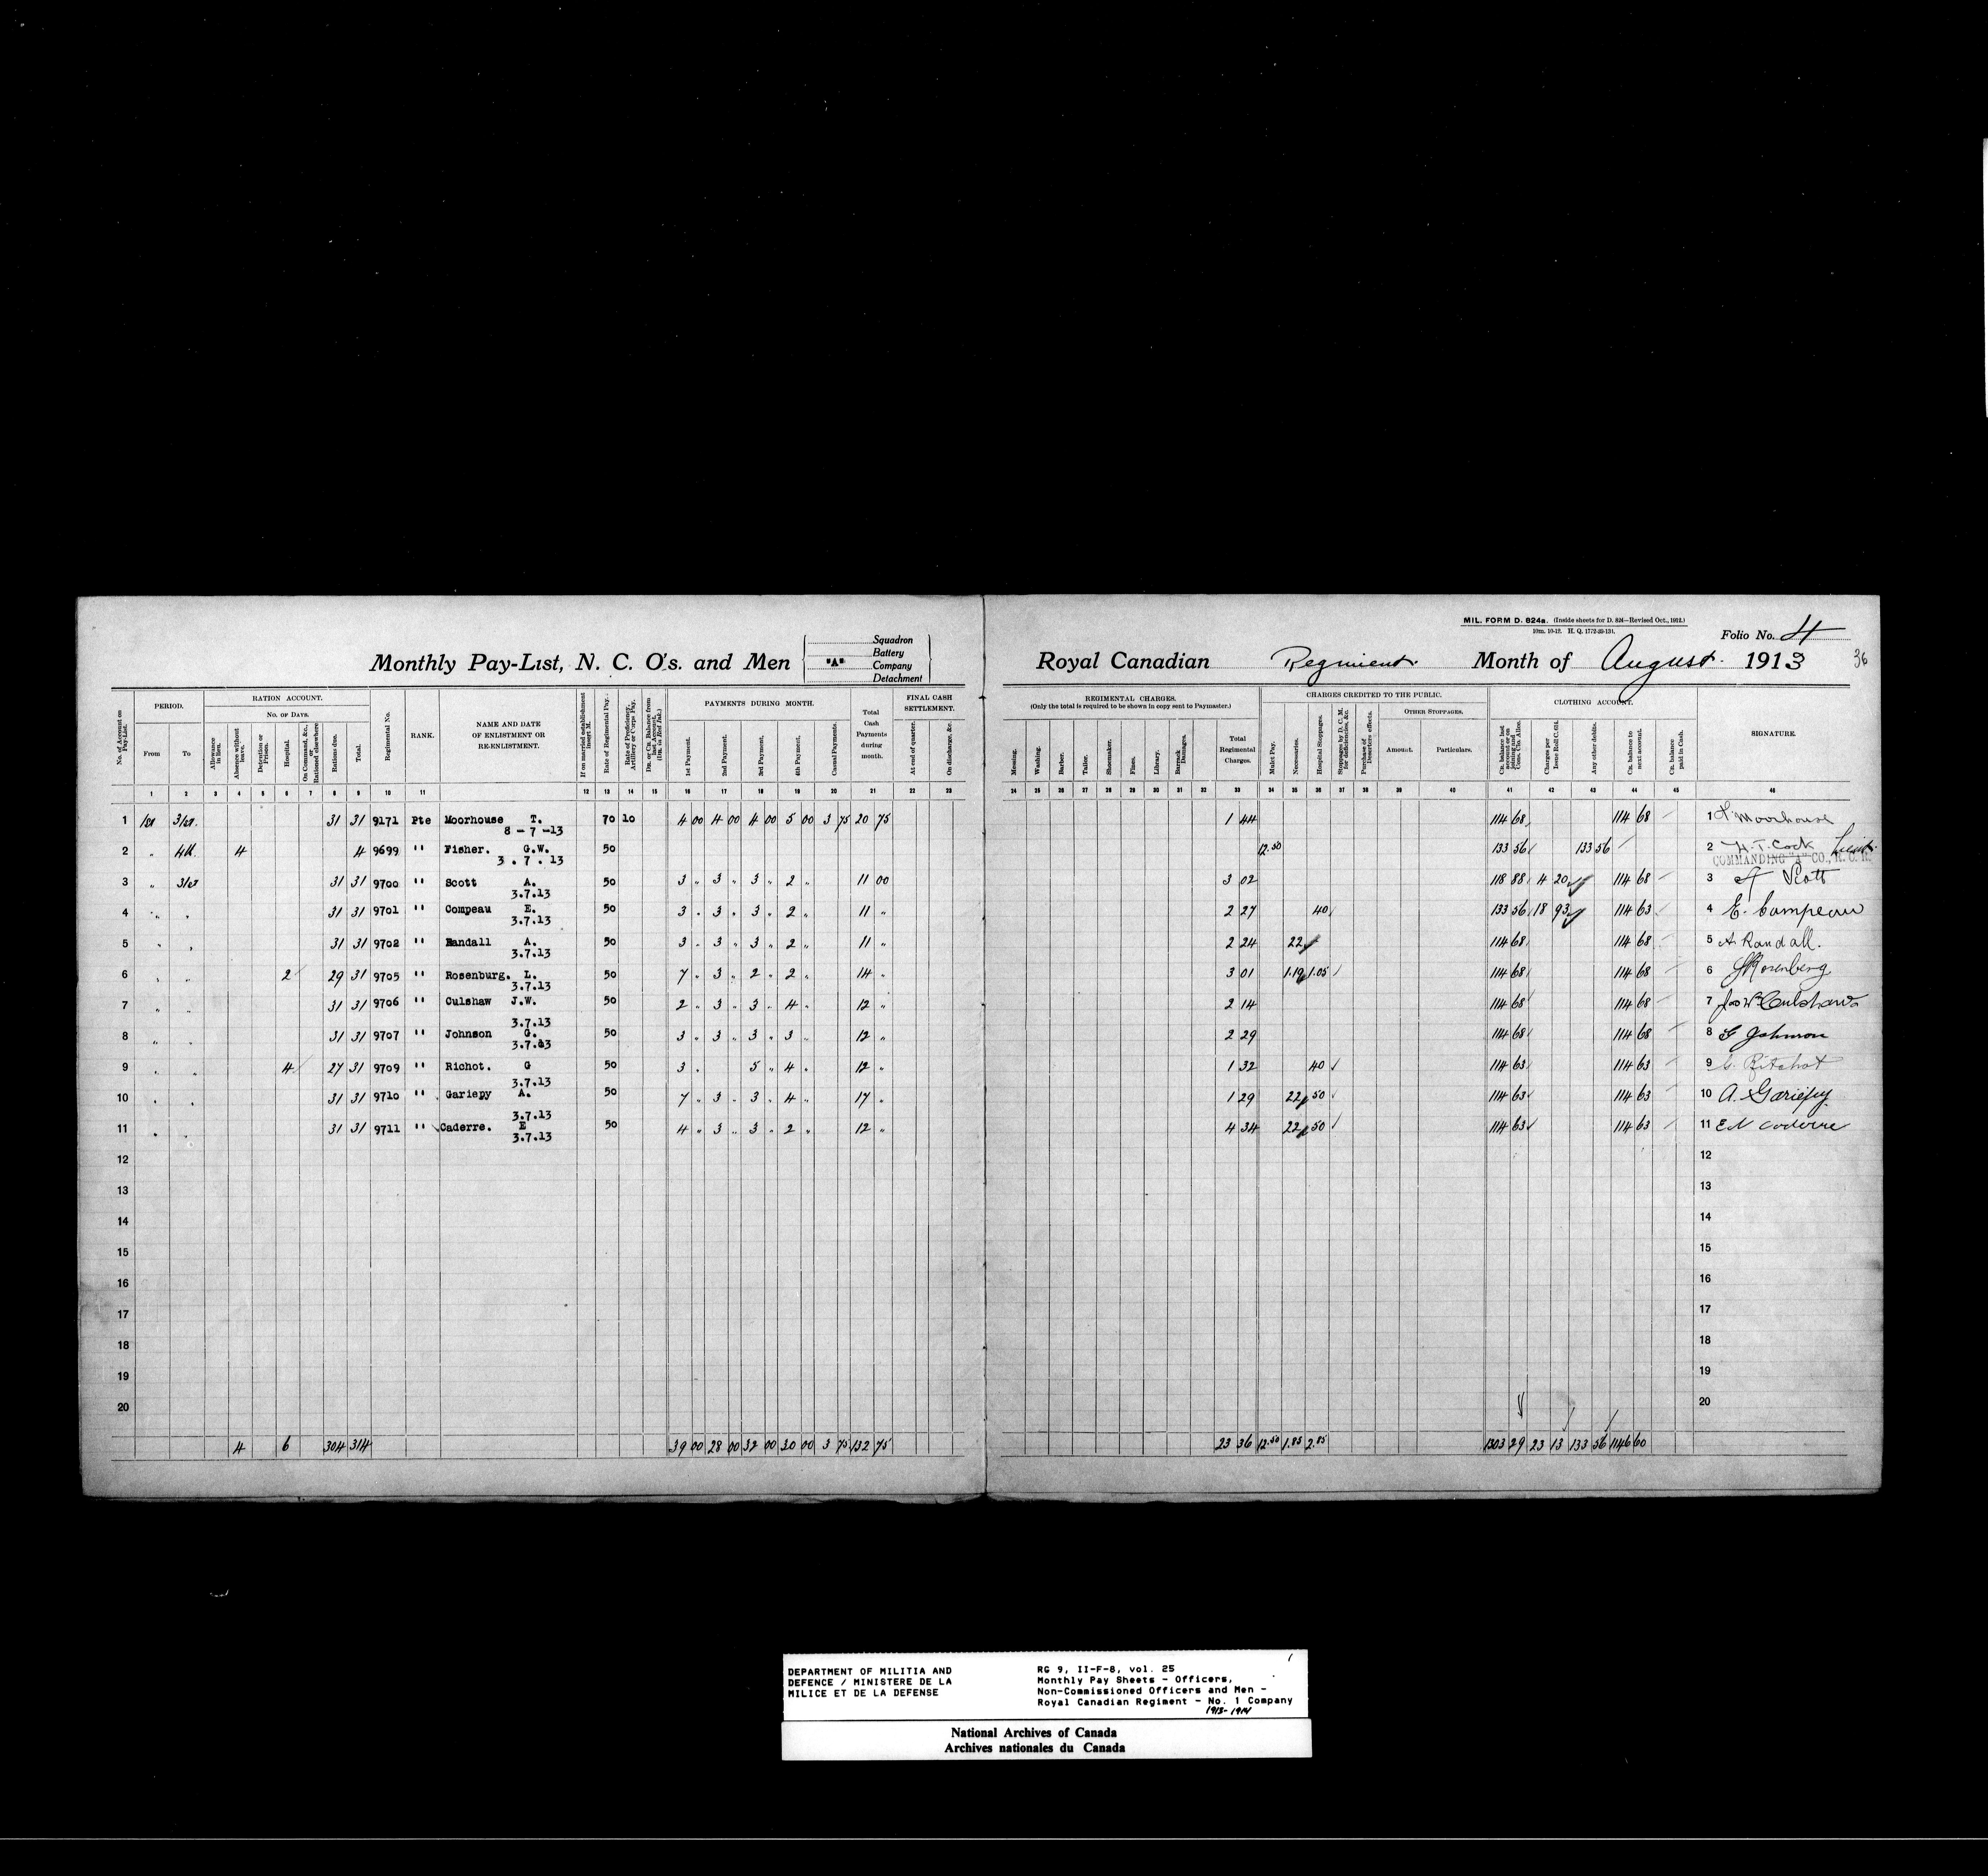 MIL. FORM D. 824a. (Inside sheets for D. 824—Revised Oct., 1912.)
10m. 10-12. H. Q. 1772-39-131.
Folio No. 4
36
Monthly Pay-List, N. C. O's. and Men "A" Squadron Battery Company Detachment Royal Canadian Regiment Month of August 1913
No. of Account on Pay-List.
PERIOD.
From
To
RATION ACCOUNT.
No. of Days.
Allowance in lieu.
Absence without leave.
Detention or Prison.
Hospital.
On Command, &c., or Rationed elsewhere
Rations due.
Total.
Regimental No.
RANK.
NAME AND DATE OF ENLISTMENT OR RE-ENLISTMENT.
If on married establishment insert M.
Rate of Regimental Pay.
Rate of Proficiency, Artillery or Corps Pay.
Dr. or Cr. Balance from last Account. (Drs. in Red Ink.)
PAYMENTS DURING MONTH.
1st Payment.
2nd Payment.
3rd Payment.
4th Payment.
Casual Payments.
Total Cash Payments during month.
FINAL CASH SETTLEMENT.
At end of quarter.
On discharge, &c.
REGIMENTAL CHARGES.
(Only the total is required to be shown in copy sent to Paymaster.)
Messing.
Washing.
Barber.
Tailor.
Shoemaker.
Fines.
Library.
Barrack Damages.
Total Regimental Charges.
CHARGES CREDITED TO THE PUBLIC.
Mulct Pay.
Necessaries.
Hospital Stoppages.
Stoppages by D. C. M. for deficiencies, &c.
Purchase of Deserters effects.
OTHER STOPPAGES.
Amount.
Particulars.
CLOTHING ACCOUNT.
Cr. balance last account or on joining and Cons. Cln. Allce.
Charges per Issue Roll C. 624.
Any other debits.
Cr. balance to next account.
Cr. balance paid in Cash.
SIGNATURE.
1 2 3 4 5 6 7 8 9 10 11 12 13 14 15 16 17 18 19 20 21 22 23 24 25 26 27 28 29 30 31 32 33 34 35 36 37 38 39 40 41 42 43 44 45 46
1 1st 31st. 31 31 9171 Pte Moorhouse T. 8-7-13 70 10 4 00 4 00 4 00 5 00 3 75 20 75 1 44 114 68 114 68 1 T. Moorhouse
2 " 4th. 4 4 9699 " Fisher. G.W. 3.7.13 50 12.50 133 56 133 56 2 H.T. Cock Lieut.
COMMANDING "A" CO., R. C. R.
3 " 31st 31 31 9700 " Scott A. 3.7.13 50 3 " 3 " 3 " 2 " 11 00 3 02 118 88 4 20 114 68 3 A Scott
4 " " 31 31 9701 " Compeau E. 3.7.13 50 3 " 3 " 3 " 2 " 11 " 2 27 40 133 56 18 93 114 63 4 E. Campeau
5 " " 31 31 9702 " Randall A. 3.7.13 50 3 " 3 " 3 " 2 " 11 " 2 24 22 114 68 114 68 5 A. Randall.
6 " " 2 29 31 9705 " Rosenburg. L. 3.7.13 50 7 " 3 " 2 " 2 " 14 " 3 01 1.19 1.05 114 68 114 68 6 Rosenberg
7 " " 31 31 9706 " Culshaw J.W. 3.7.13 50 2 " 3 " 3 " 4 " 12 " 2 14 114 68 114 68 7 Jas W. Culshaw
8 " " 31 31 9707 " Johnson G. 3.7.13 50 3 " 3 " 3 " 3 " 12 " 2 29 114 68 114 68 8 G Johnson
9 " " 4 27 31 9709 " Richot. G 3.7.13 50 3 " 5 " 4 " 12 " 1 32 40 114 63 114 63 9 G. Ritchot
10 " " 31 31 9710 " Gariepy A. 3.7.13 50 7 " 3 " 3 " 4 " 17 " 1 29 22 50 114 63 114 63 10 A. Gariépy
11 " " 31 31 9711 " Caderre. E 3.7.13 50 4 " 3 " 3 " 2 " 12 " 4 34 22 50 114 63 114 63 11 E N Coderre
12 12
13 13
14 14
15 15
16 16
17 17
18 18
19 19
20 20
4 6 304 314 39 00 28 00 32 00 30 00 3 75 132 75 23 36 12.50 1.85 2.85 1303 29 23 13 133 56 1146 60
DEPARTMENT OF MILITIA AND
DEFENCE / MINISTERE DE LA
MILICE ET DE LA DEFENSE
RG 9, II-F-8, vol. 25
Monthly Pay Sheets - Officers,
Non-Commissioned Officers and Men -
Royal Canadian Regiment - No. 1 Company
1913-1914
National Archives of Canada
Archives nationales du Canada